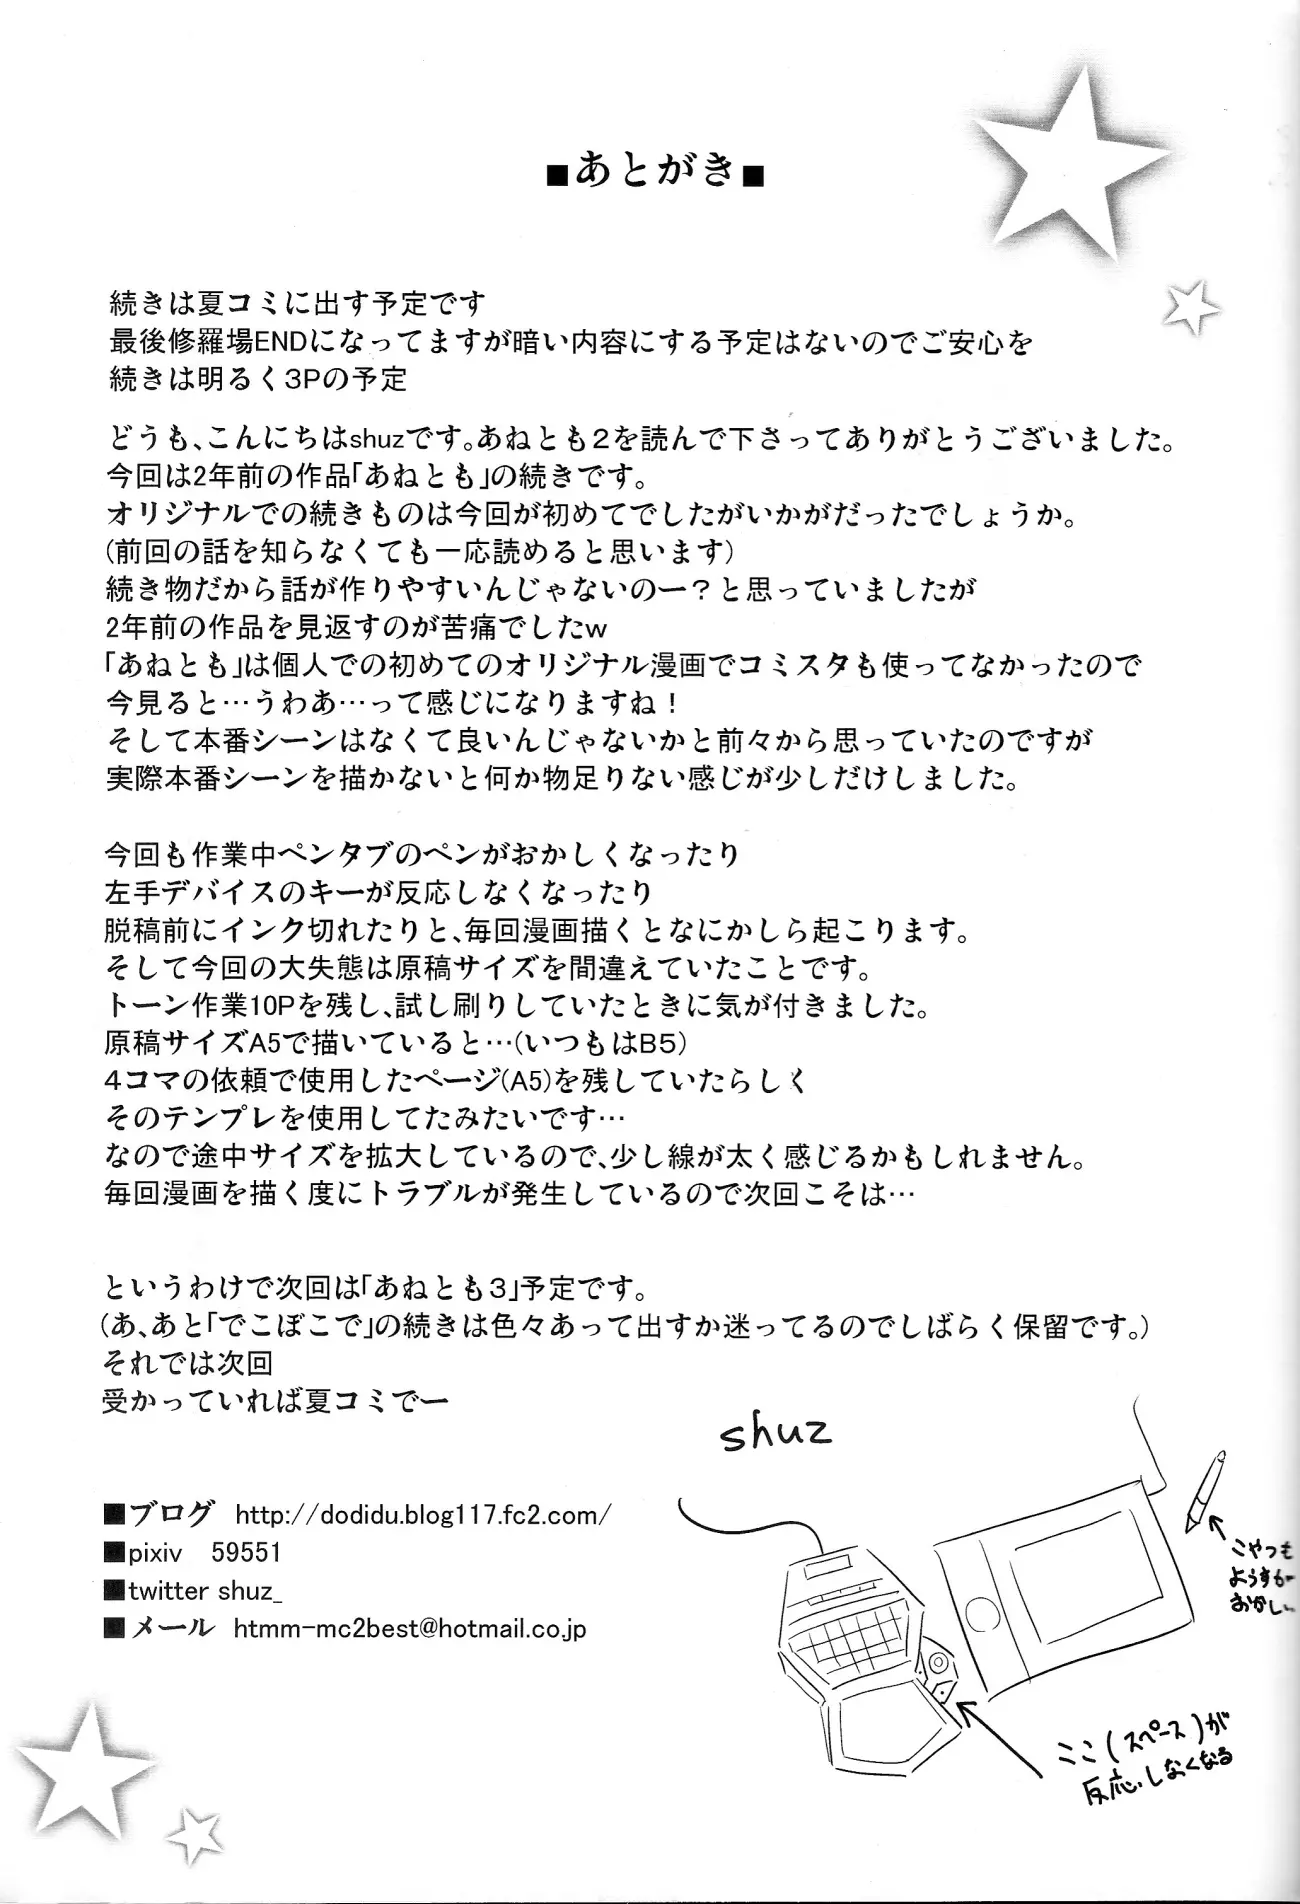 ■あとがき■
続きは夏コミに出す予定です
最後修羅場ENDになってますが暗い内容にする予定はないのでご安心を
続きは明るく3Pの予定
どうも、こんにちはshuzです。あねとも２を読んで下さってありがとうございました。
今回は2年前の作品「あねとも」の続きです。
オリジナルでの続きものは今回が初めてでしたがいかがだったでしょうか。
(前回の話を知らなくても一応読めると思います)
続き物だから話が作りやすいんじゃないのー？と思っていましたが
2年前の作品を見返すのが苦痛でしたw
「あねとも」は個人での初めてのオリジナル漫画でコミスタも使ってなかったので
今見ると…うわあ…って感じになりますね！
そして本番シーンはなくて良いんじゃないかと前々から思っていたのですが
実際本番シーンを描かないと何か物足りない感じが少しだけしました。
今回も作業中ペンタブのペンがおかしくなったり
左手デバイスのキーが反応しなくなったり
脱稿前にインク切れたりと、毎回漫画描くとなにかしら起こります。
そして今回の大失態は原稿サイズを間違えていたことです。
トーン作業10Pを残し、試し刷りしていたときに気が付きました。
原稿サイズA5で描いていると…(いつもはB５)
４コマの依頼で使用したページ(A5)を残していたらしく
そのテンプレを使用してたみたいです…
なので途中サイズを拡大しているので、少し線が太く感じるかもしれません。
毎回漫画を描く度にトラブルが発生しているので次回こそは…
というわけで次回は「あねとも３」予定です。
(あ、あと「でこぼこで」の続きは色々あって出すか迷ってるのでしばらく保留です。)
それでは次回
受かっていれば夏コミでー
shuz
■ブログ http://dodidu.blog117.fc2.com/
■pixiv 59551
■twitter shuz_
■メール htmm-mc2best@hotmail.co.jp
こやつも
ようすが
おかしい
ここ(スペース)が
反応しなくなる